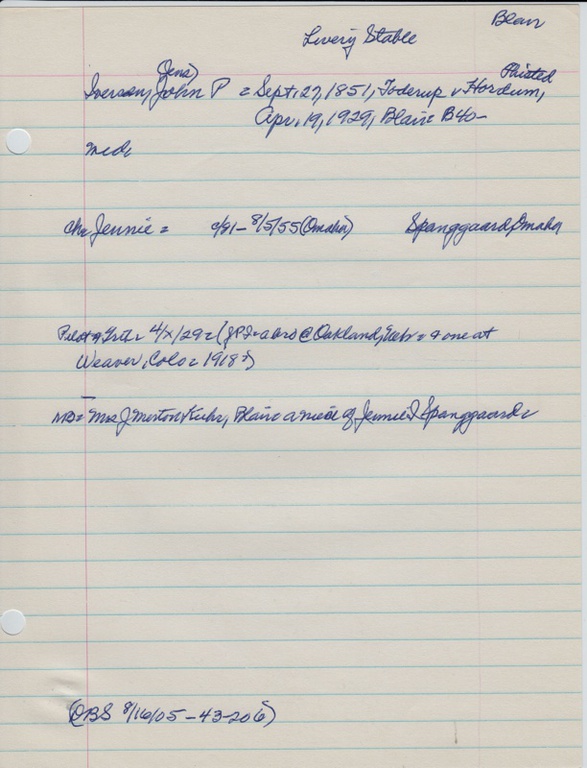 Blair
Livery Stable
(Jens) Thisted
Iverson, John P = Sept, 27, 1851, Toderup v Hordum,
Apr, 19, 1929, Blair B40-
med,
Ch= Jennie = c/81 - 8/5/55 (Omaha) Spanggaard, Omaha
Pilot 4/x/29 = (JPI = a bro @ Oakland, Nebr = & one at
Weaver, Colo = 1918+)
NB = Mrs J Merton Kuhr, Blair a niece of Jennie I Spanggaard
(QBS 8/16/05 - 43-206)